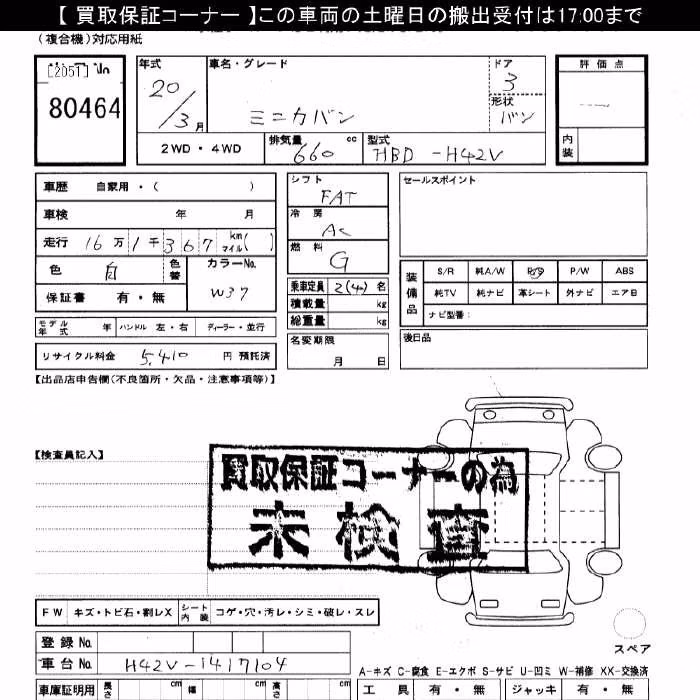 【 買取保証コーナー 】この車両の土曜日の搬出受付は17:00まで
(複合機)対応用紙
[2051]
80464
年式 車名・グレード ドア 評価点
20/3月 ミニカバン 3
形状 バン
2WD・4WD 排気量 660 cc 型式 HBD-H42V
内装
車歴 自家用・( )
車検 年 月
走行 16万1千367 km マイル( )
色 白 色替 カラーNo. W37
保証書 有・無
モデル年式 年 ハンドル 左・右 ディーラー・並行
リサイクル料金 5,410 円 預託済
シフト FAT
冷房 AC
燃料 G
乗車定員 2(4) 名
積載量 kg
総重量 kg
名変期限 月 日
セールスポイント
装備品 S/R 純A/W P/S P/W ABS
純TV 純ナビ 革シート 外ナビ エアB
ナビ型番:
後日品
【出品店申告欄(不良箇所・欠品・注意事項等)】
【検査員記入】
買取保証コーナーの為
未検査
FW キズ・トビ石・割レX シート内装 コゲ・穴・汚レ・シミ・破レ・スレ
スペア
登録No.
車台No. H42V-1417104
A-キズ C-腐食 E-エクボ S-サビ U-凹ミ W-補修 XX-交換済
車庫証明用 長さ cm 幅 cm 高さ cm
工具 有・無 ジャッキ 有・無